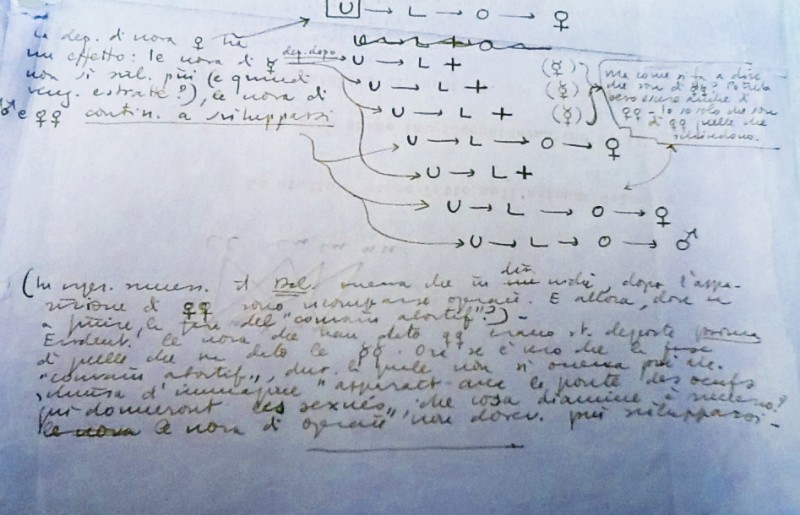 U → L → O → ♀
La dep. di uova ♀ ha
un effetto: le uova di ☿ dep. dopo
non si svil. più (e quindi
veng. estratte?), le uova di
♂ e ♀♀ contin. a svilupparsi
U → L + O
U → L +
U → L + (☿)
U → L + (☿)
U → L → O → ♀
U → L +
U → L → O → ♀
U → L → O → ♂
ma come si fa a dire
che son di ☿☿? Potrebbero
essere anche di
♀♀ - Io so solo che son
di ♀♀ quelle che
(In espr. success. il Del. osserva che in nidi, dopo l'appa-
rizione di ♀♀ sono ricomparse operaie. E allora, dove va
a finire la fase del "couvain abortif"?) -
Evident. le uova che han dato ☿☿ erano st. deposte prima
di quelle che han dato le ♀♀. Ora se è vero che la fase
"couvain abortif", dur. la quale non si osserva più
"apparaît avec la ponte des oeufs
qui donneront les sexués", che cosa diamine è successo?
le uova di operaie non dovev. più svilupparsi -